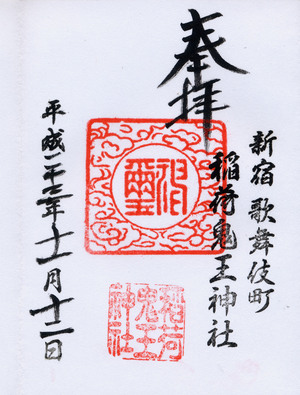 奉拝
新宿歌舞伎町
稲荷鬼王神社
平成二十三年十一月十二日
稲荷
鬼王
神社